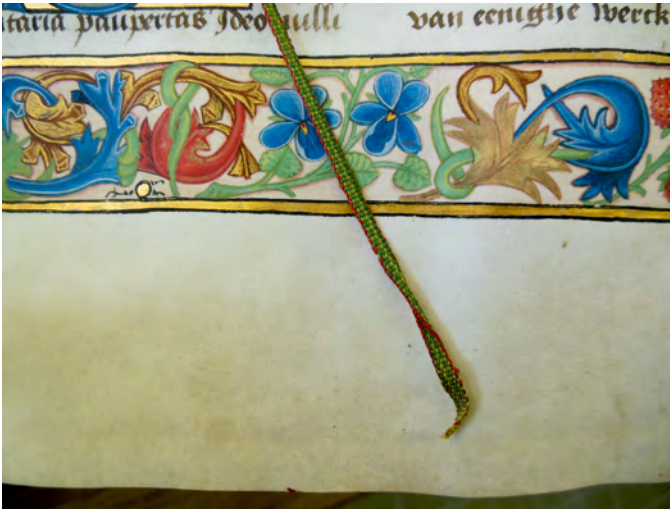 taria paupertas Ideo nulli
van eenighe werck